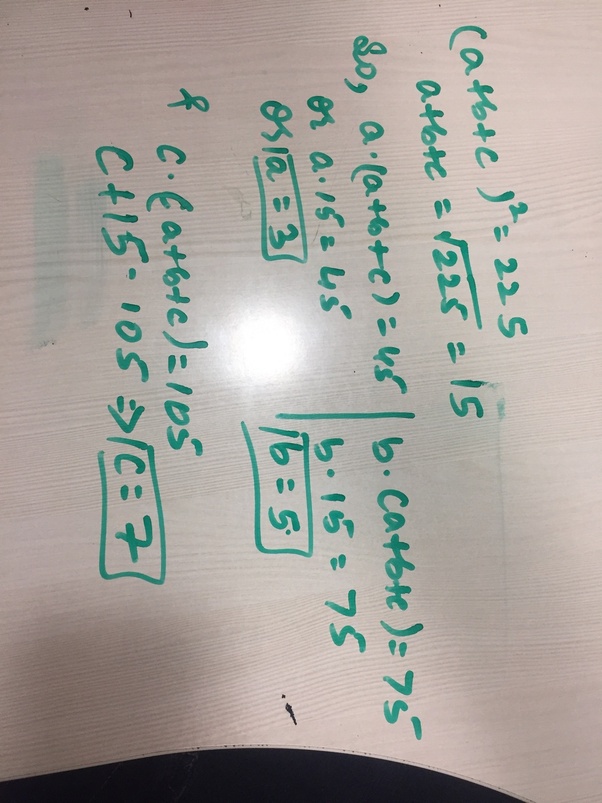 (a+b+c)² = 225
a+b+c = √225 = 15
So, a·(a+b+c) = 45 | b·(a+b+c) = 75
or a·15 = 45 | b·15 = 75
or a = 3 | b = 5
& c·(a+b+c) = 105
c+15 = 105 ⇒ c = 7